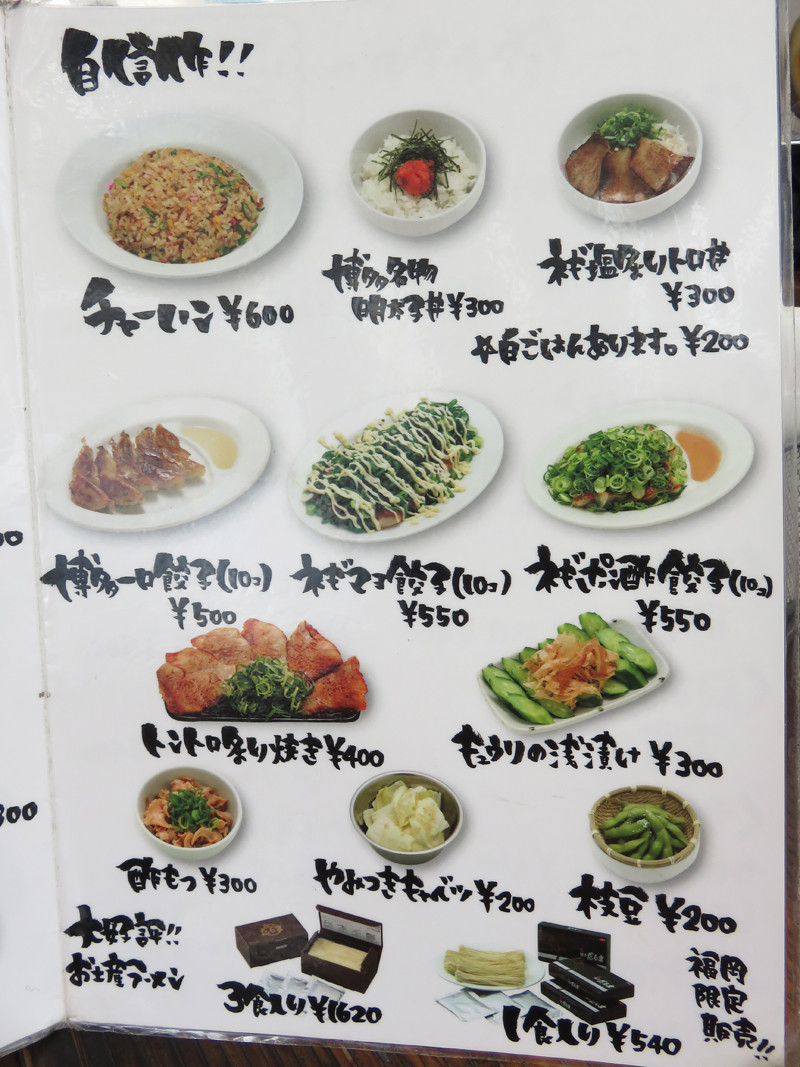 自信作!!
チャーハン ¥600
博多名物
明太子丼 ¥300
ネギ塩炙りトロ丼
¥300
☆白ごはんあります。¥200
博多一口餃子(10コ)
¥500
ネギマヨ餃子(10コ)
¥550
ネギポン酢餃子(10コ)
¥550
トントロ炙り焼き ¥400
キュウリの浅漬け ¥300
酢もつ ¥300
やみつきキャベツ ¥200
枝豆 ¥200
大好評!!
お土産ラーメン
3食入り ¥1620
1食入り ¥540
福岡
限定
販売!!